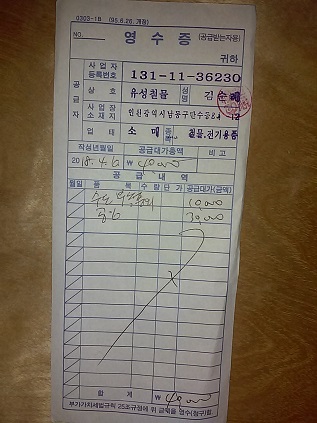 0303-1B ('95.6.26.개정)
NO.
영수증 (공급받는자용)
귀하
공급자
사업자등록번호 131-11-36230
상호 유성철물 성명 김순
사업장소재지 인천광역시남동구만수동84
업태 소매 종목 철물.전기용품
작성년월일 공급대가총액 비고
2018.4.6 ₩ 40,000
공급내역
월일 품목 수량 단가 공급대가(금액)
수도 10,000
30,000
합계 ₩ 40,000
부가가치세법규칙 25조규정에 위 금액을 영수(청구)함.